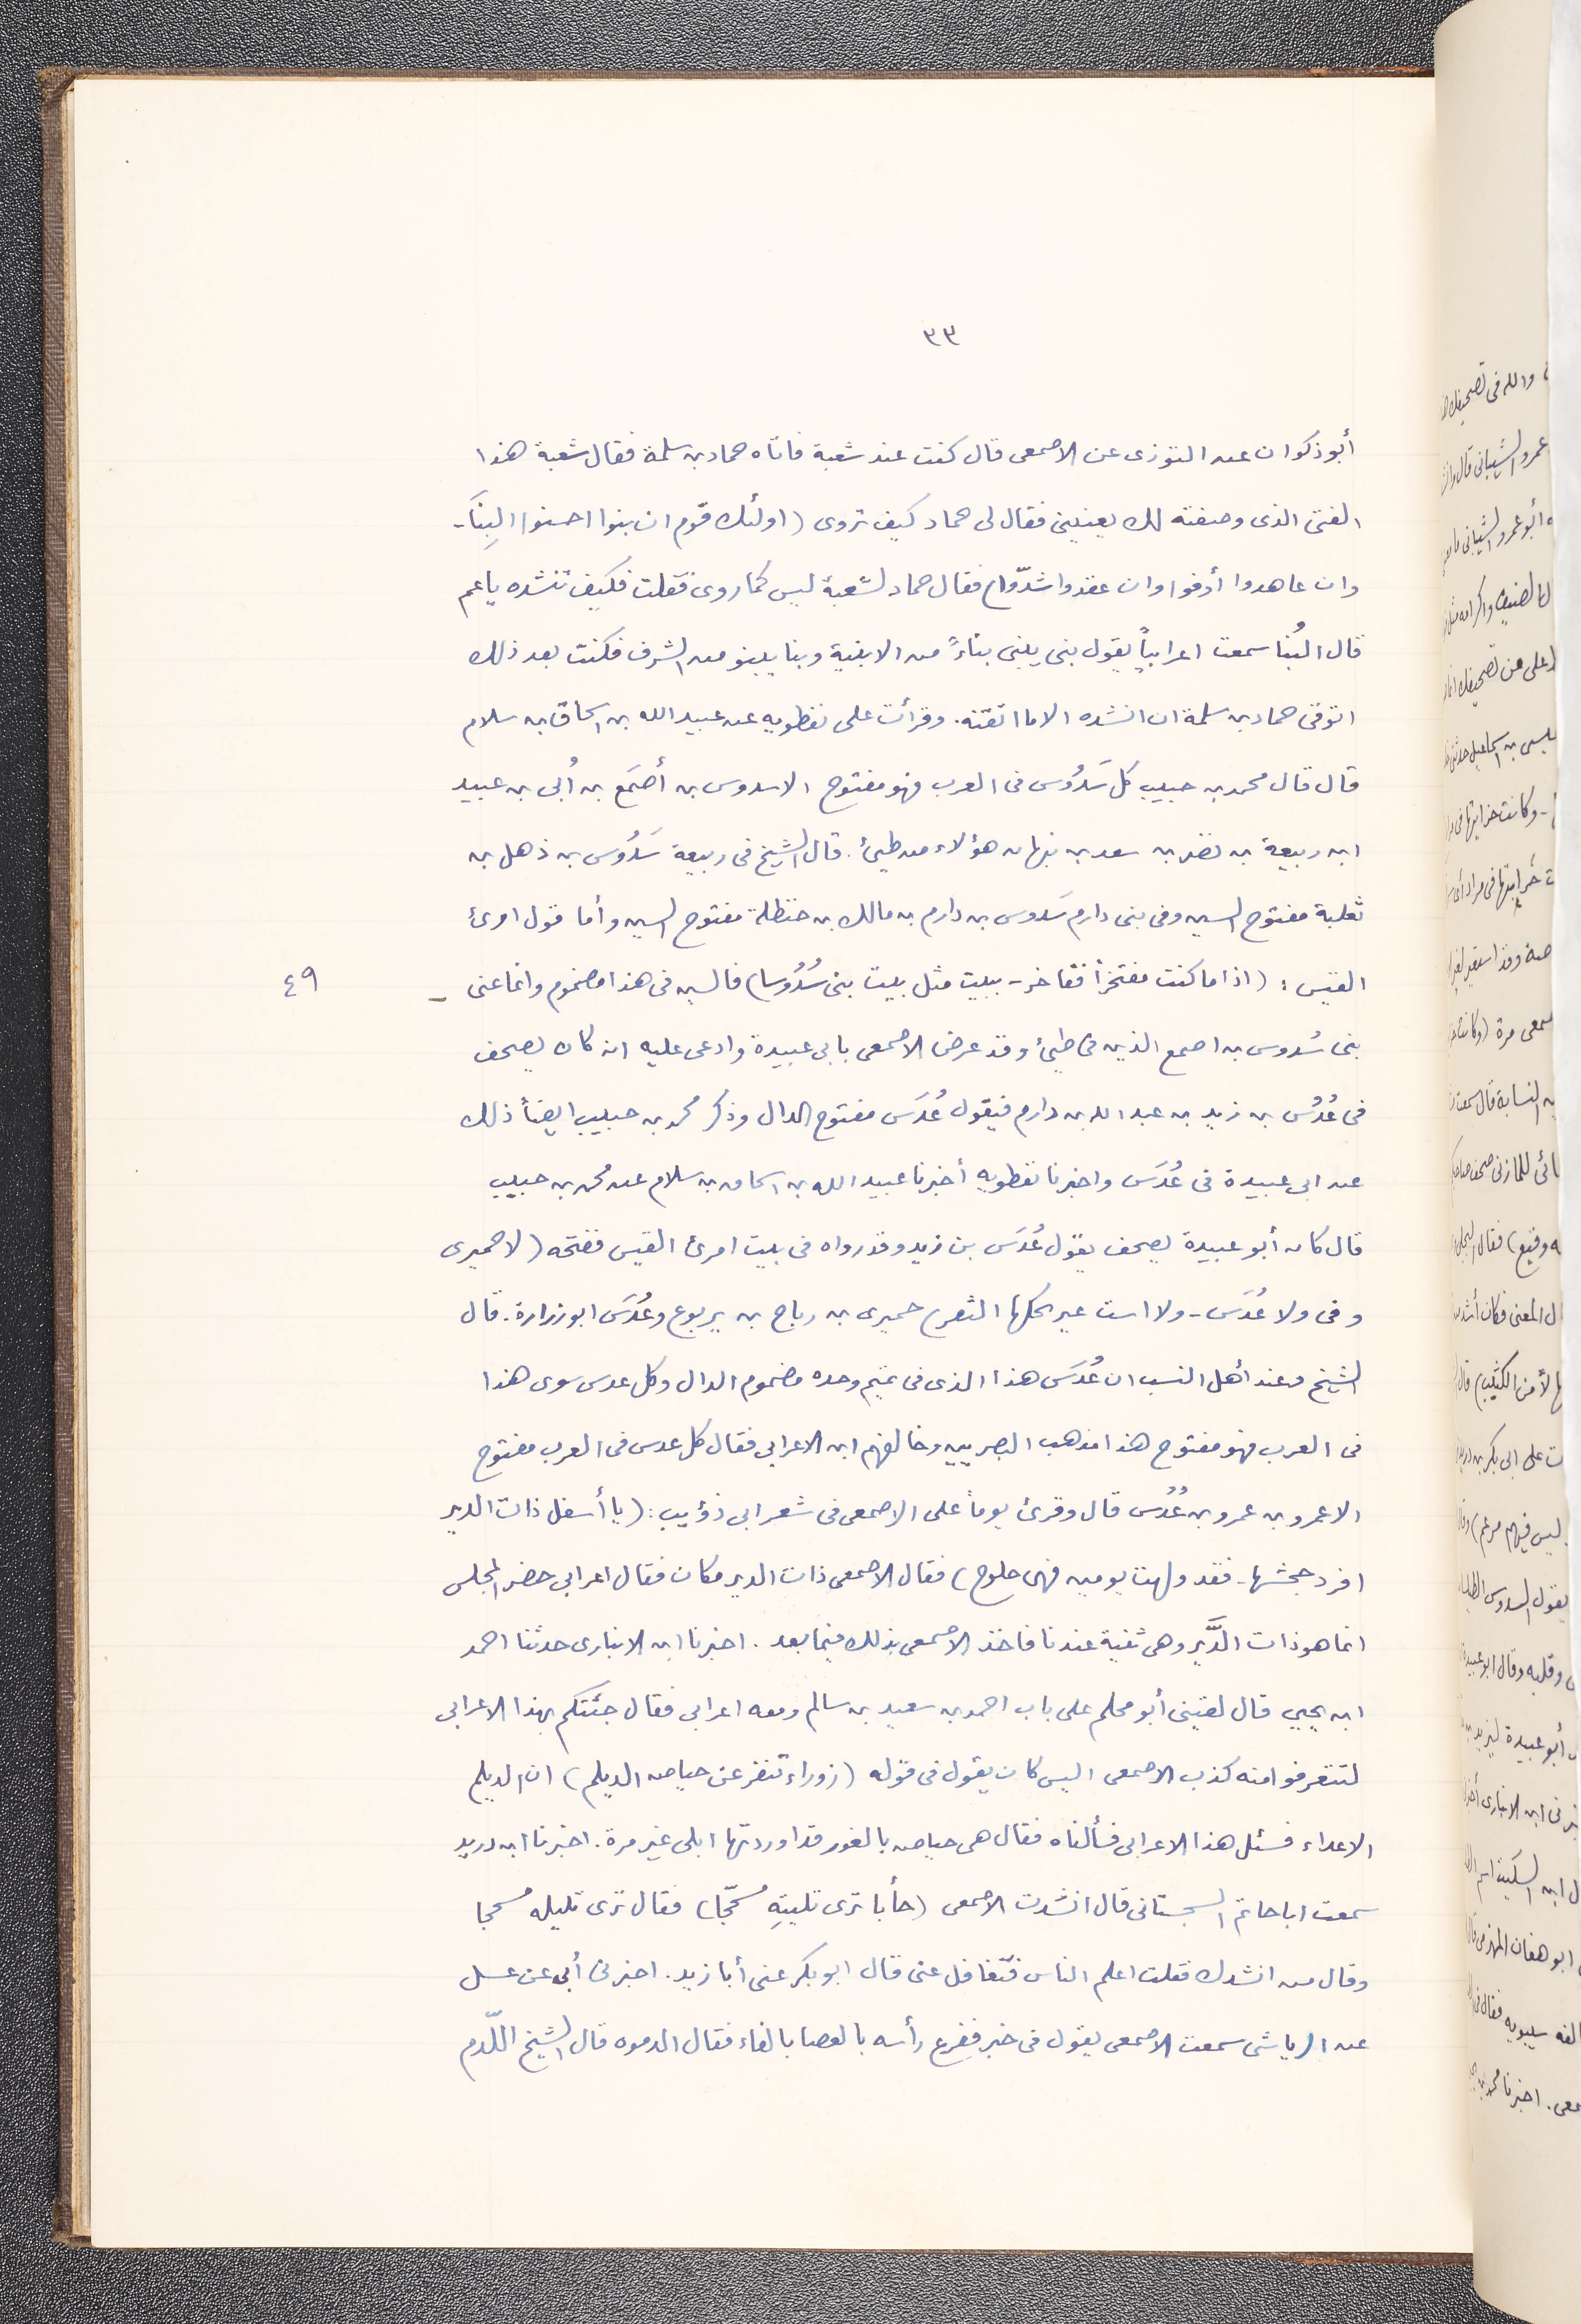 ٣٣
أبو ذكوان عن التوزى عن الاصمعى قال كنت عند شعبة فاتاه حماد بن سلمة فقال شعبة هذا
الفتى الذى وصفته لك يعنينى فقال لى حماد كيف تروى (اولئك قوم ان بنوا احسنوا البِنَا -
وان عاهدوا أوفوا وان عقدوا شدّوا) فقال حماد لشعبة ليس كما روى فقلت فكيف تنشده ياعم
قال البُنا سمعت اعرابياً يقول بنى يبنى بناءً من الابنية وبنا يبنو من الشرف فكنت بعد ذلك
اتوقى حماد بن سلمة ان انشده الا ما اتقنته. وقرأت على نفطويه عن عبيد الله بن اسحاق بن سلام
قال قال محمد بن حبيب كل سَدُوس فى العرب فهو مفتوح الا سدوس بن أصمَع بن اُبى بن عبيد
ابن ربيعة بن نضر بن سعد بن نبهان هؤلاء من طيئ. قال الشيخ فى ربيعة سَدُوس بن ذهل بن
ثعلبة مفتوح السين وفى بنى دارم سَدوس بن دارم بن مالك بن حنظلة مفتوح السين وأما قول امرئ
القيس : (اذا ما كنت مفتخراً ففاخر - ببيت مثل بيت بنى سُدُوسا) فالسين فى هذا مضموم وانما عنى
٤٩
بنى سُدوس بن اصمع الذين فى طيئ وقد عرض الاصمعى بابى عبيدة وادعى عليه انه كان يصحف
فى عُدُس بن زيد بن عبد الله بن دارم فيقول عُدَس مفتوح الدال وذكر محمد بن حبيب ايضاً ذلك
عن ابى عبيدة فى عُدَس واخبرنا نفطويه أخبرنا عبيد الله بن اسحاق بن سلام عن محمد بن حبيب
قال كان أبو عبيدة يصحف يقول عُدَس بن زيد وقد رواه فى بيت امرئ القيس ففتحه (لا حميرى
وفى ولا عُدَس - ولا است عير يحكها الثفر) حميرى بن رباح بن يربوع وعُدَس ابو زرارة. قال
الشيخ وعند أهل النسب ان عُدَس هذا الذى فى تميم وحده مضموم الدال وكل عدس سوى هذا
فى العرب فهو مفتوح هذا مذهب البصريين وخالفهم ابن الاعرابى فقال كل عدس فى العرب مفتوح
الا عمرو بن عمرو بن عُدُس قال وقرئ يوماً على الاصمعى فى شعر ابى ذؤيب : (يا أسفل ذات الدير
افرد جحشها - فقد ولهت يومين فهى خلوج) فقال الاصمعى ذات الدير مكان فقال اعرابى حضر المجلس
انما هو ذات الدَّبر وهى ثنية عندنا فاخذ الاصمعى بذلك فيما بعد. اخبرنا ابن الانبارى حدثنا احمد
ابن يحيى قال لقينى أبو محلم على باب احمد بن سعيد بن سالم ومعه اعرابى فقال جئتكم بهذا الاعرابى
لتتعرفوا منه كذب الاصمعى اليس كان يقول فى قوله (زوراء تنفر عن حياض الديلم) ان الديلم
الاعداء فسئل هذا الاعرابى فسألناه فقال هى حياض بالغور قد اوردتها ابلى غير مرة. اخبرنا ابن دريد
سمعت ابا حاتم السجستانى قال انشدت الاصمعى (جأبا ترى تليتِه مسحّجا) فقال ترى تليله مسحجا
وقال من انشدك فقلت اعلم الناس فتغافل عنى قال ابو بكر عنى أبا زيد. اخبرنى أبى عن عسل
عن الرياشى سمعت الاصمعى يقول فى خبر ففرع رأسه بالعصا بالفاء فقال الدموه قال الشيخ اللّدم